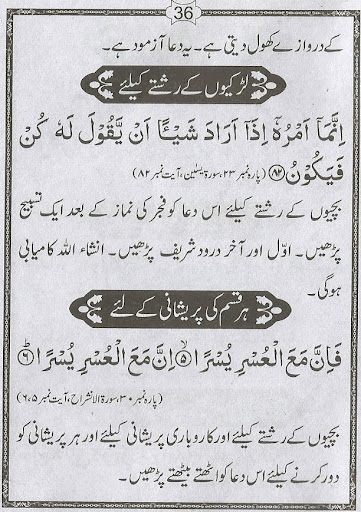 36
کے دروازے کھول دیتی ہے۔ یہ دعا آزمودہ ہے۔
لڑکیوں کے رشتے کیلئے
اِنَّمَاۤ اَمْرُهٗۤ اِذَاۤ اَرَادَ شَیْـًٔا اَنْ یَّقُوْلَ لَهٗ كُنْ
فَیَكُوْنُ ﴿۸۲﴾ (پارہ نمبر ۲۳، سورۃ یٰسین، آیت نمبر ۸۲)
بچیوں کے رشتے کیلئے اس دعا کو فجر کی نماز کے بعد ایک تسبیح
پڑھیں۔ اوّل اور آخر درود شریف پڑھیں۔ انشاء اللہ کامیابی
ہوگی۔
ہر قسم کی پریشانی کے لئے
فَاِنَّ مَعَ الْعُسْرِ یُسْرًا ﴿۵﴾ اِنَّ مَعَ الْعُسْرِ یُسْرًا ﴿۶﴾
(پارہ نمبر ۳۰، سورۃ الانشراح، آیت نمبر ۵، ۶)
بچیوں کے رشتے کیلئے اور کاروباری پریشانی کیلئے اور ہر پریشانی کو
دور کرنے کیلئے اس دعا کو اٹھتے بیٹھتے پڑھیں۔